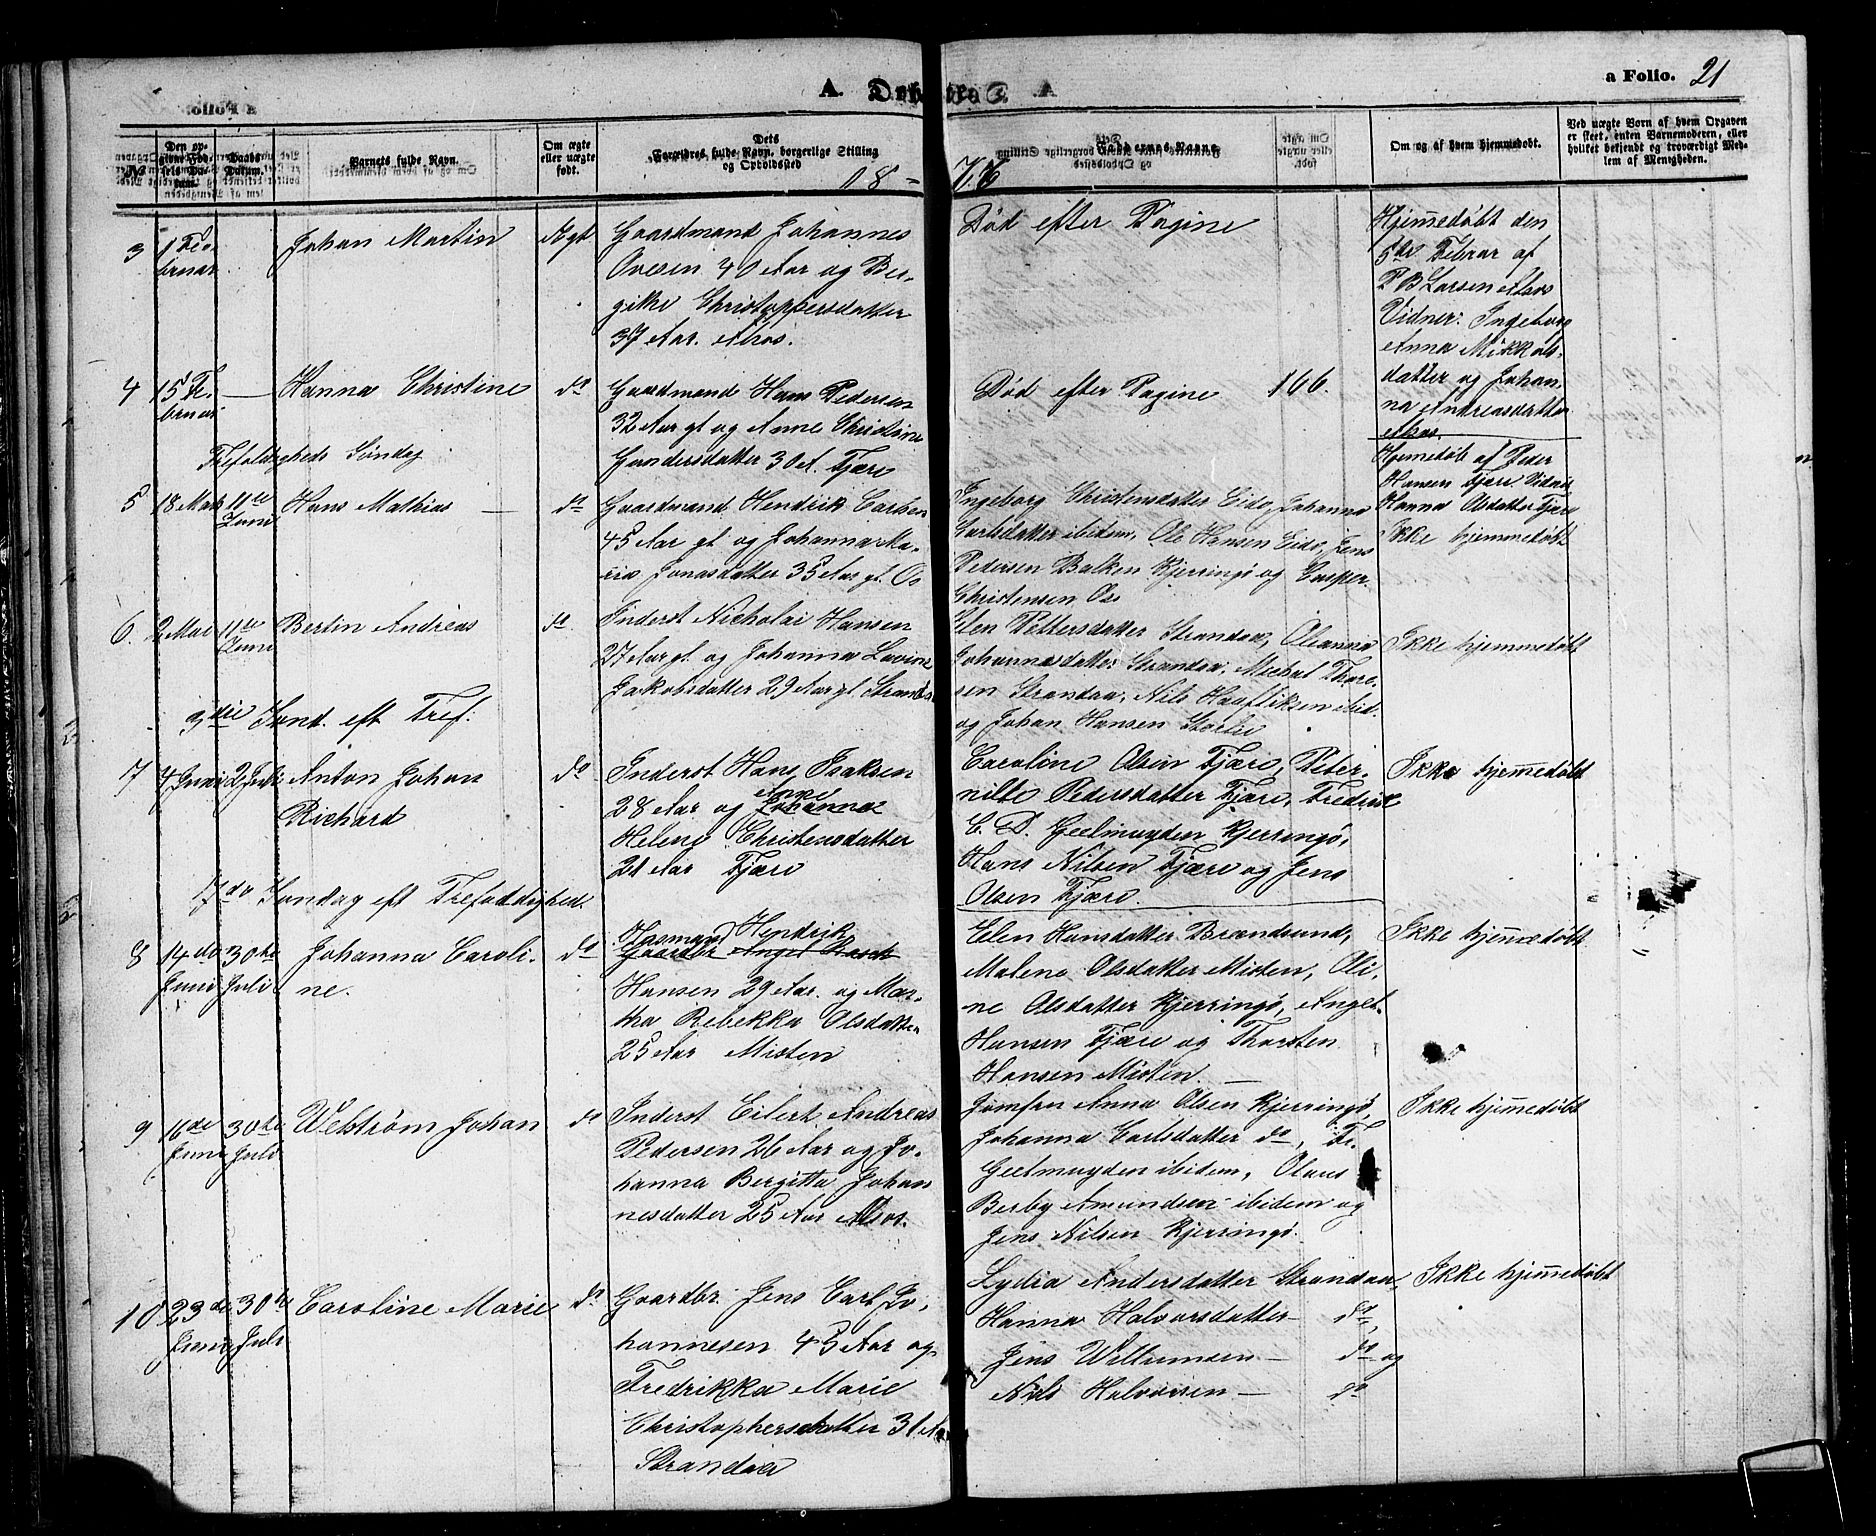 A. Døbte. a Folio. 21
No. Den opgivne Fødsels Datum. Daabs Datum. Barnets fulde Navn. Om ægte eller uægte født. Dets Forældres fulde Navn, borgerlige Stilling og Opholdssted Faddernes Navne. Om og af hvem hjemmedøbt. Ved uægte Børn af hvem Opgaven er skeet, enten Barnemoderen, eller hvilket bekjendt og troværdigt Medlem af Menigheden.
18
3 1 Fe-
bruar
Johan Martin
Ægt
Gaardmand Johannes
Ovesen 40 Aar og Be-
gitte Christophersdatter
37 Aar.
Død efter Pagine
Hjemmedøbt den
5de Febrar af
P B Larsen
Vidner: Ingeborg
Anna Mikkels-
datter og Johan-
na Andreasdatter
4 15 Fe-
bruar
Hanna Christine
do
Gaardmand Hans Pedersen
32 Aar gl og Anne Christine
Gundersdatter 30 A. Fjære
Død efter Pagine 166.
Hjemmedøb af Peder
Hansen Fjære Vidne
Hanna Olsdatter Fjære
Trefoldigheds Søndag
5 18 Mai 11te
Juni
Hans Mathias
do
Gaardmand Hendrik Carlsen
45 Aar gl og Johanna Ma-
ria Jonasdatter 35 Aar gl. Os
Ingeborg Christensdatter Eide, Johanna
Carlsdatter ibidem, Ole Hansen Eide, Jens
Pedersen Balken Kjerringø og Casper
Christensen Os
Ikke hjemmedøbt
6. 2 Mai 11te
Juni
Bertin Andreas
do
Inderst Nicholai Hansen
27 Aar gl. og Johanna Lovine
Jakobsdatter 29 Aar gl. Strandaa
Elen Pettersdatter Strandaa, Oleanna
Johannesdatter Strandaa, Michal Thore-
sen Strandaa, Nils Haaftiksen ibid.
og Johan Hansen
Ikke hjemmedøbt
3die Sønd. eft Tref.
7 4 Juni 2 Juli
Anton Johan
Richard
do
Inderst Hans Isaksen
28 Aar og Anne Johanna
Helene Christensdatter
21 Aar Fjære
Caroline Olsen Fjære, Peter-
nille Pedersdatter Fjære, Fredrik
C. D. Geelmuyden Kjerringø,
Hans Nilsen Fjære og Jens
Olsen Fjære.
Ikke hjemmedøbt
7de Søndag eft Trefoldighed.
8 14de
Juni
30te
Juli
Johanna Caroli-
ne.
do
Husmand Hendrik
Gaardbr. Angel
Hansen 29 Aar. og Mar-
tha Rebekka Olsdatter
25 Aar Misten
Elen Hansdatter Brændsund,
Malene Olsdatter Misten, Oli-
ne Olsdatter Kjerringø, Angel
Hansen Fjære og Thorsten
Hansen Misten
Ikke hjemmedøbt
9 16de
Juni
30te
Juli
Welstrøm Johan
do
Inderst Eilert Andreas
Pedersen 26 Aar og Jo-
hanna Bergitta Johan
nesdatter 25 Aar
Jomfru Anna Olsen Kjerringø,
Johanna Carlsdatter do, Fr.
Geelmuyden ibidem, Olaus
Berby Amundsen ibidem og
Jens Nilsen Kjerringø.
Ikke hjemmedøbt
10 23de
Juni
30te
Juli
Caroline Marie
do
Gaardbr. Jens Carl Jo-
hannesen 43 Aar og
Fredrikka Marie
Christophersdatter 31 A
Strandaa
Lydia Andersdatter Strandaa,
Hanna Halvorsdatter - do,
Jens Willumsen - do og
Nils Halvorsen - do
Ikke hjemmedøbt